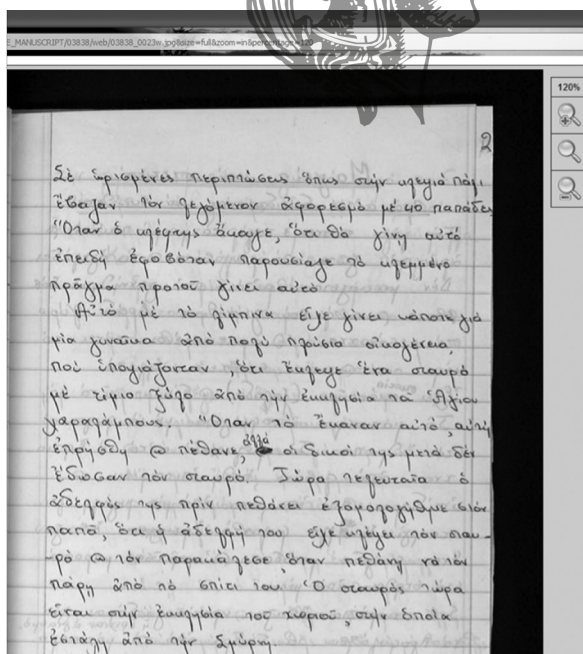 E_MANUSCRIPT/03838/web/03838_0023w.jpg&size=full&zoom=in&percentage=120
120%
2
Σὲ ὡρισμένες περιπτώσεις ὅπως στὴν κλεψιά πάλι
ἔβαζαν τὸν λεγόμενον ἀφορεσμό μέ 40 παπάδες
"Οταν ὁ κλέφτης ἄκουγε, ὅτι θὰ γίνη αὐτό
ἐπειδή ἐφοβόταν παρουσίαζε τὸ κλεμμένο
πρᾶγμα προτοῦ γίνει αὐτό.
Αὐτό μὲ τὸ εἶχε γίνει κάποτε γιὰ
μία γυναῖκα ἀπὸ πολύ πλούσια οἰκογένεια,
ποὺ ὑποψιάζονταν, ὅτι ἔκλεψε ἕνα σταυρό
μὲ τίμιο ξύλο ἀπὸ τὴν ἐκκλησία τοῦ Ἁγίου
χαραλάμπους. "Οταν τὸ ἔκαναν αὐτό, αὐτή
ἐπρήσθη πέθανε, ἀλλά οἱ δικοί της μετά δέν
ἔδωσαν τόν σταυρό. Τώρα τελευταῖα ὁ
ἀδελφός της πρίν πεθάνει ἐξομολογήθηκε στόν
παπᾶ, ὅτι ἡ ἀδελφή του εἶχε κλέψει τὸν σταυ-
-ρό τὸν παρακάλεσε, ὅταν πεθάνη νὰ τὸν
πάρη ἀπὸ τὸ σπίτι του. Ὁ σταυρός τώρα
εἶναι στὴν ἐκκλησία τοῦ χωριοῦ, στὴν ὁποία
ἐστάλη ἀπὸ τὴν Σμύρνη.